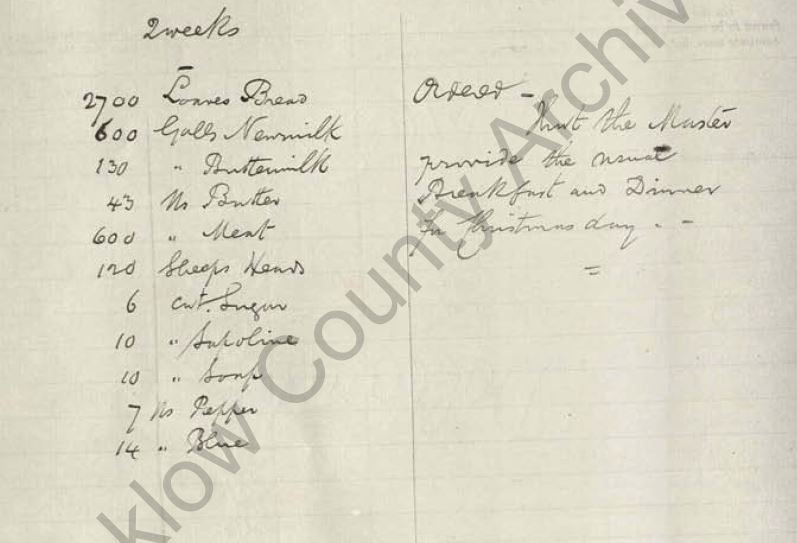 2 weeks
2700 Loaves Bread
600 Galls Newmilk
130 " Buttermilk
43 lbs Butter
600 " Meat
120 Sheeps Heads
6 cwt. Sugar
10 "
10 " Soap
7 lbs Pepper
14 " Blue
Ordered -
That the Master
provide the usual
Breakfast and Dinner
for Christmas day . -
=
klow County Archiv